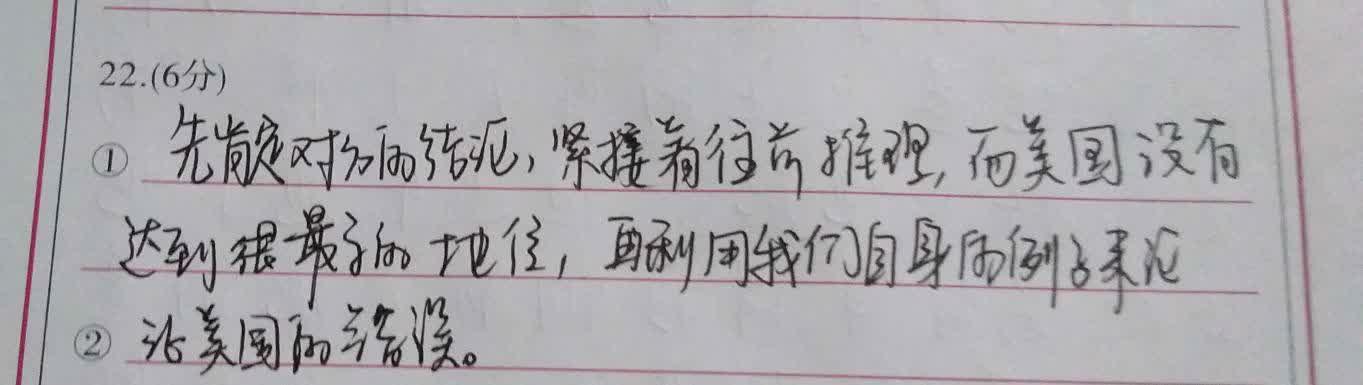 22.(6分)
① 先肯定对方的结论,紧接着往前推理,而美国没有
达到最高的地位,再利用我们自身的例子来论
② 美国的错误。